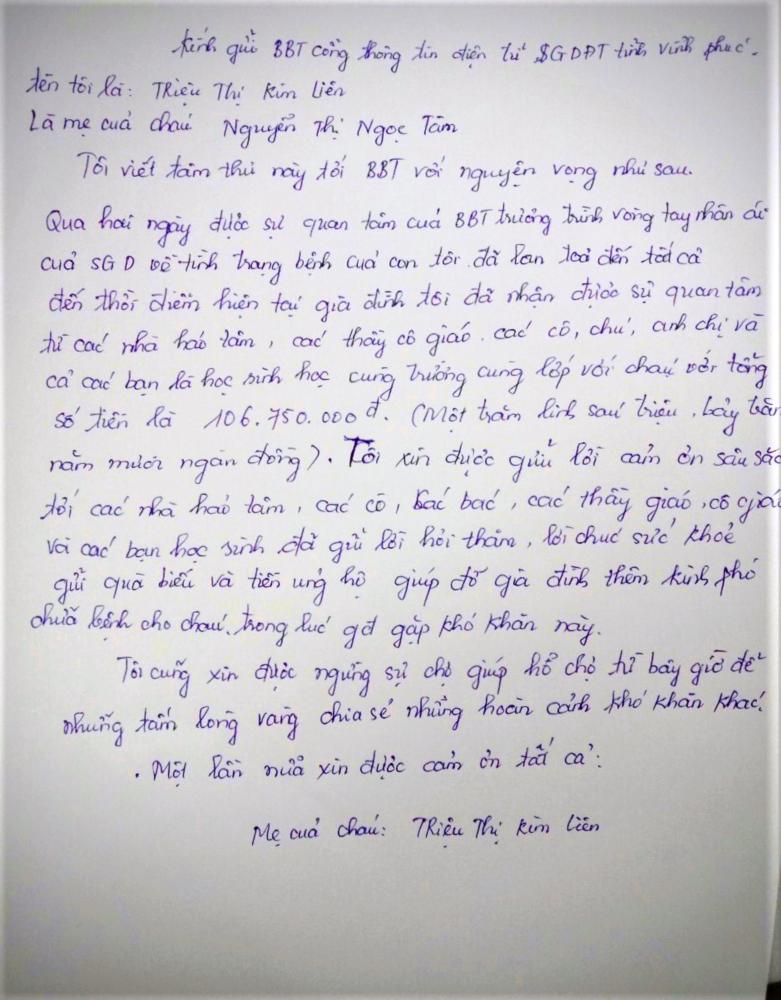 kính gửi BBT cổng thông tin điện tử SGDĐT tỉnh vĩnh phúc.
tên tôi là: Triệu Thị Kim Liên
Là mẹ cuả cháu Nguyễn Thị Ngọc Tâm
Tôi viết tâm thư này tới BBT với nguyện vọng như sau.
Qua hai ngày được sự quan tâm cuả BBT trương trình vòng tay nhân ái
cuả SGD về tình trạng bệnh cuả con tôi đã lan toả đến tất cả
đến thời điểm hiện tại gia đình tôi đã nhận được sự quan tâm
từ các nhà hảo tâm, các thầy cô giáo. các cô, chú, anh chị và
cả các bạn là học sinh học cùng trường cùng lớp với cháu với tổng
số tiền là 106.750.000đ. (Một trăm linh sáu triệu, bảy trăm
năm mươi ngàn đồng). Tôi xin được gửi lời cảm ơn sâu sắc
tới các nhà hảo tâm, các cô, các bác, các thầy giáo, cô giáo
và các bạn học sinh đã gửi lời hỏi thăm, lời chúc sức khoẻ
gửi quà biếu và tiền ủng hộ giúp đỡ gia đình thêm kinh phí
chưã bệnh cho cháu. trong lúc gđ gặp khó khăn này.
Tôi cũng xin được ngừng sự chợ giúp hỗ chợ từ bây giờ để
những tấm lòng vàng chia sẻ những hoàn cảnh khó khăn khác.
. Một lần nưã xin được cảm ơn tất cả:
Mẹ cuả cháu: Triệu Thị Kim Liên